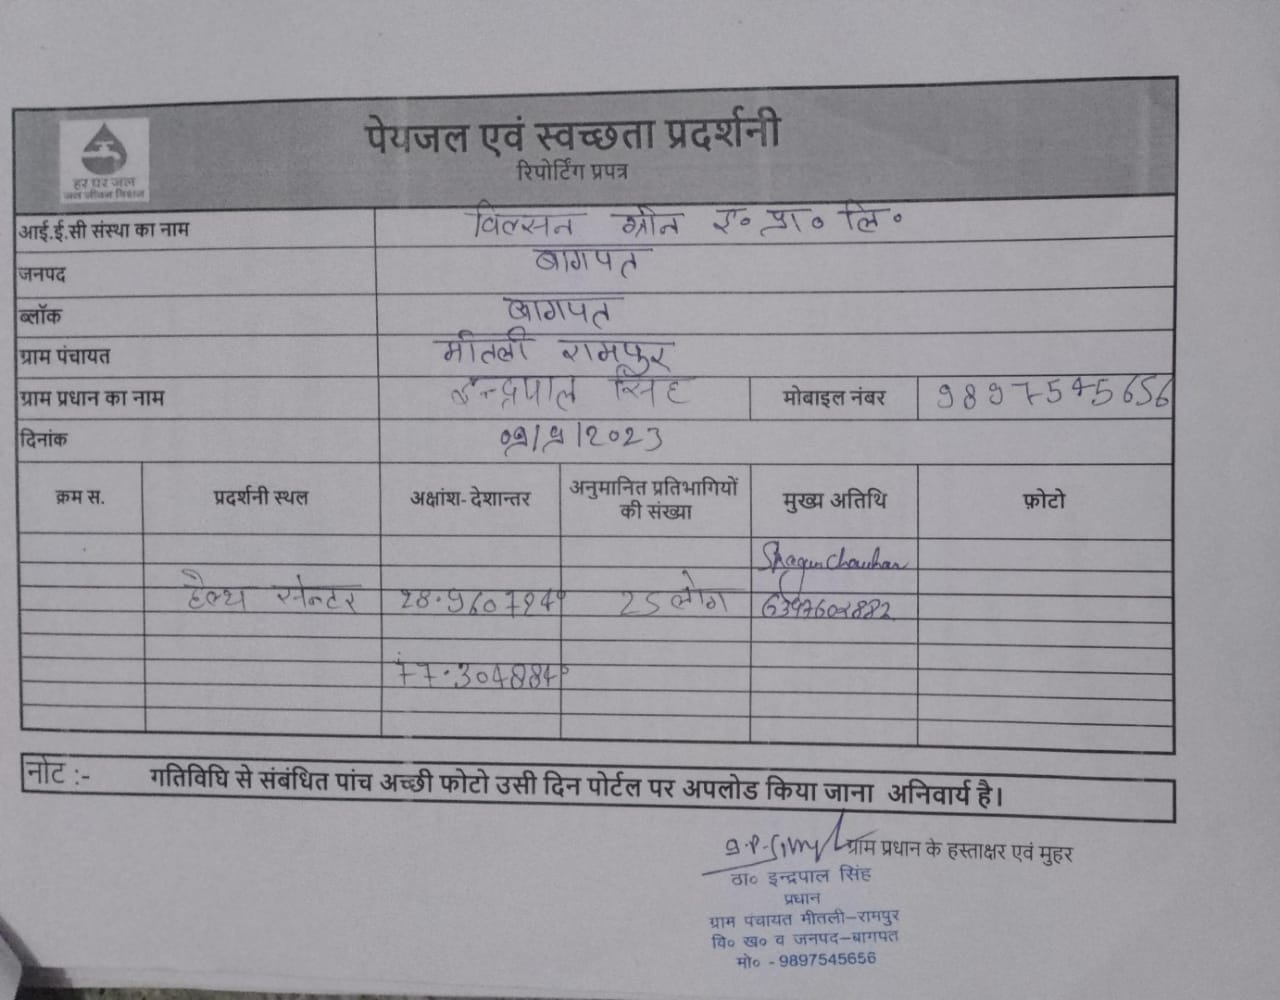 पेयजल एवं स्वच्छता प्रदर्शनी
रिपोर्टिंग प्रपत्र
हर घर जल
जल जीवन मिशन
आई.ई.सी संस्था का नाम विल्सन ग्रीन इ० प्रा० लि०
जनपद बागपत
ब्लॉक बागपत
ग्राम पंचायत मीतली रामपुर
ग्राम प्रधान का नाम इन्द्रपाल सिंह मोबाइल नंबर 9897545656
दिनांक /2023
क्रम स. प्रदर्शनी स्थल अक्षांश- देशान्तर अनुमानित प्रतिभागियों की संख्या मुख्य अतिथि फ़ोटो
Shagun Chauhan
हेल्थ सेन्टर 28.960724° 25 लोग
77.304884°
नोट :- गतिविधि से संबंधित पांच अच्छी फोटो उसी दिन पोर्टल पर अपलोड किया जाना अनिवार्य है।
ग्राम प्रधान के हस्ताक्षर एवं मुहर
ठा० इन्द्रपाल सिंह
प्रधान
ग्राम पंचायत मीतली–रामपुर
वि० ख० व जनपद–बागपत
मो० - 9897545656